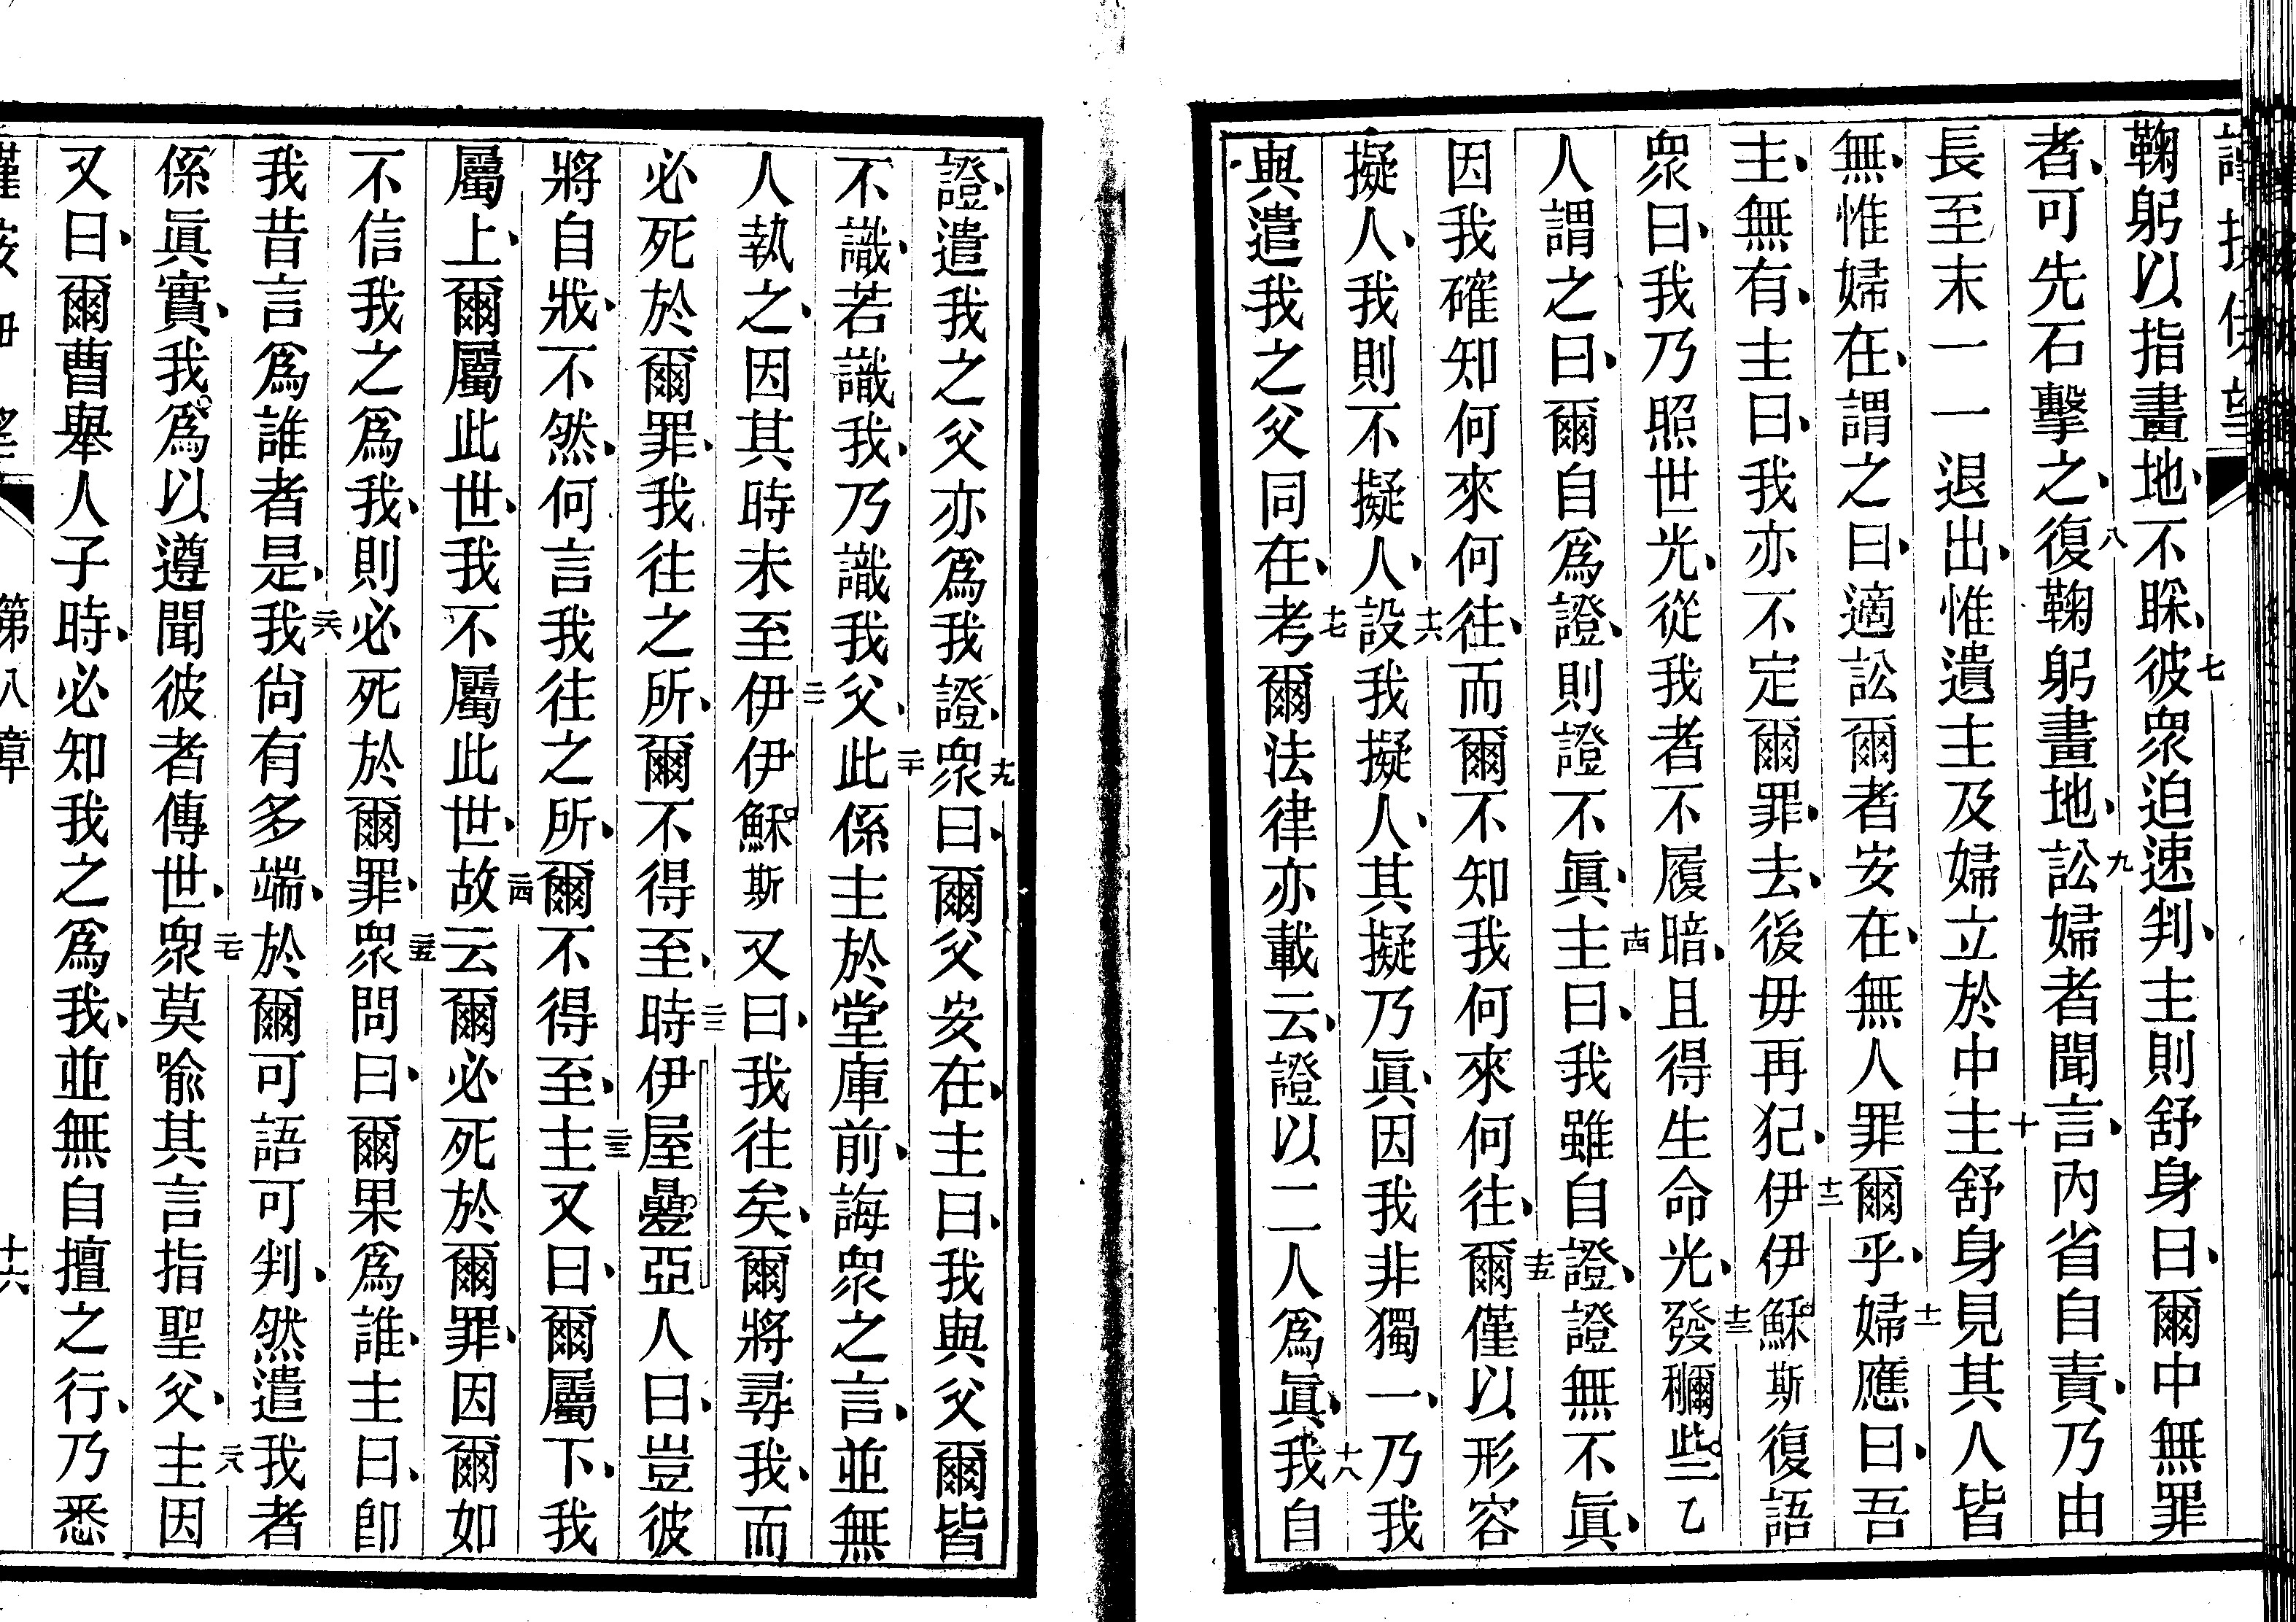 鞠躬以指畫地、不睬、七彼衆迫速判、主則舒身曰、爾中無罪
者、可先石擊之、八復鞠躬畫地、九訟婦者聞言、內省自責、乃由
長至末一一退出、惟遺主及婦立於中、十主舒身見其人皆
無、惟婦在、謂之曰、適訟爾者安在、無人罪爾乎、十一婦應曰、吾
主、無有、主曰、我亦不定爾罪、去、後毋再犯、十二伊伊穌斯復語
衆曰、我乃照世光、從我者不履暗、且得生命光、十三發穪些乙
人謂之曰、爾自爲證、則證不眞、十四主曰、我雖自證、證無不眞、
因我確知何來何往、而爾不知我何來何往、十五爾僅以形容
擬人、我則不擬人、十六設我擬人、其擬乃眞、因我非獨一、乃我
與遣我之父同在、十七考爾法律亦載云、證以二人爲眞、十八我自
證、遣我之父亦爲我證、十九衆曰、爾父安在、主曰、我與父爾皆
不識、若識我、乃識我父、二十此係主於堂庫前、誨衆之言、並無
人執之、因其時未至、二一伊伊穌斯又曰、我往矣、爾將尋我、而
必死於爾罪、我往之所、爾不得至、二二時伊屋疊亞人曰、豈彼
將自戕、不然、何言我往之所、爾不得至、二三主又曰、爾屬下、我
屬上、爾屬此世、我不屬此世、二四故云爾必死於爾罪、因爾如
不信我之爲我、則必死於爾罪、二五衆問曰、爾果爲誰、主曰、卽
我昔言爲誰者是、二六我尙有多端、於爾可語可判、然遣我者
係眞實、我爲以遵聞彼者傳世、二七衆莫喻其言指聖父、二八主因
又曰、爾曹舉人子時、必知我之爲我、並無自擅之行、乃悉
第八章
十六